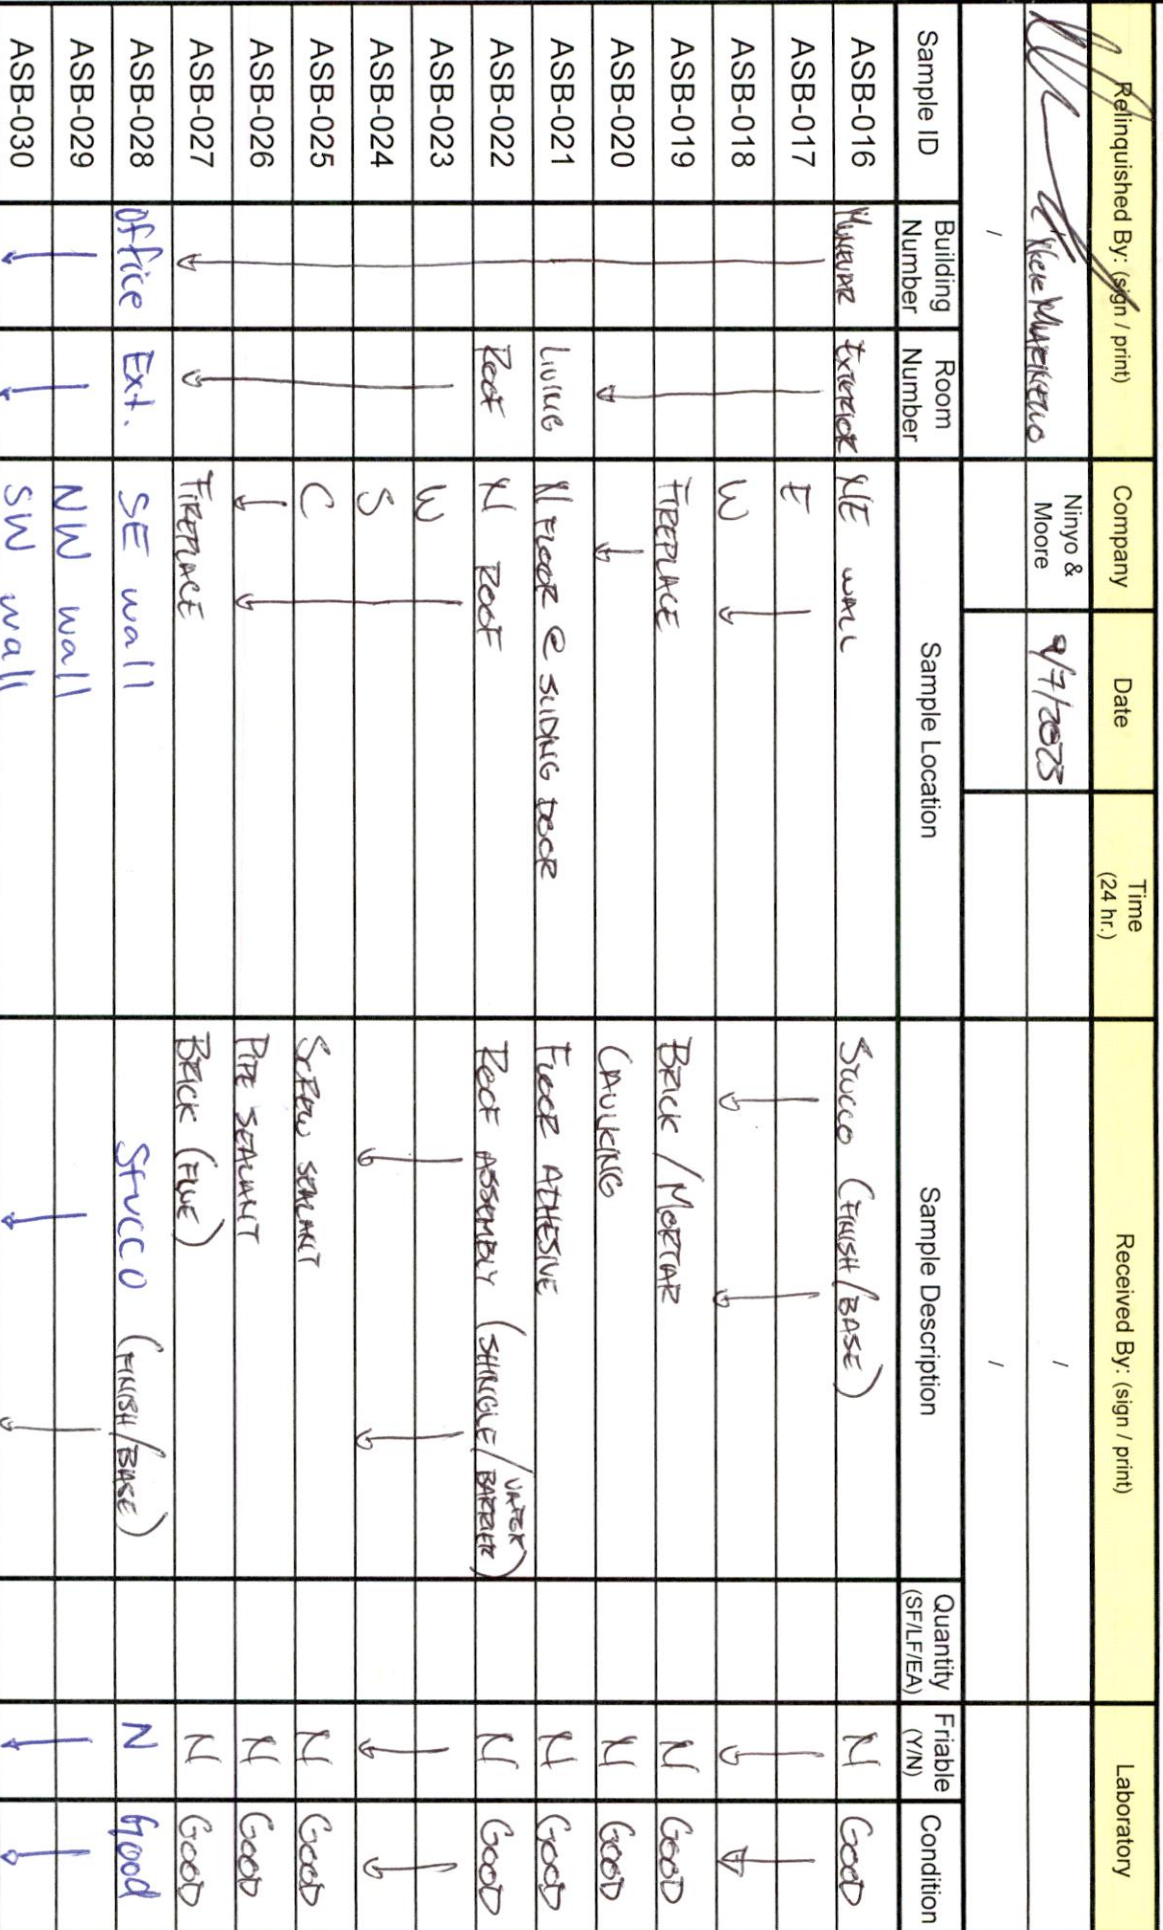 Relinquished By: (sign / print) Company Date Time (24 hr.) Received By: (sign / print) Laboratory
Ninyo & Moore 9/7/2023 /
/ /
Sample ID Building Number Room Number Sample Location Sample Description Quantity (SF/LF/EA) Friable (Y/N) Condition
ASB-016 EXTERIOR NE WALL STUCCO (FINISH/BASE) N GOOD
ASB-017 E
ASB-018 W
ASB-019 FIREPLACE BRICK / MORTAR N GOOD
ASB-020 CAULKING N GOOD
ASB-021 LIVING N FLOOR @ SLIDING DOOR FLOOR ADHESIVE N GOOD
ASB-022 ROOF N ROOF ROOF ASSEMBLY (SHINGLE/WATER BARRIER) N GOOD
ASB-023 W
ASB-024 S
ASB-025 C SCREW SEALANT N GOOD
ASB-026 PIPE SEALANT N GOOD
ASB-027 FIREPLACE BRICK (FLUE) N GOOD
ASB-028 office Ext. SE wall Stucco (FINISH/BASE) N Good
ASB-029 NW wall
ASB-030 SW wall